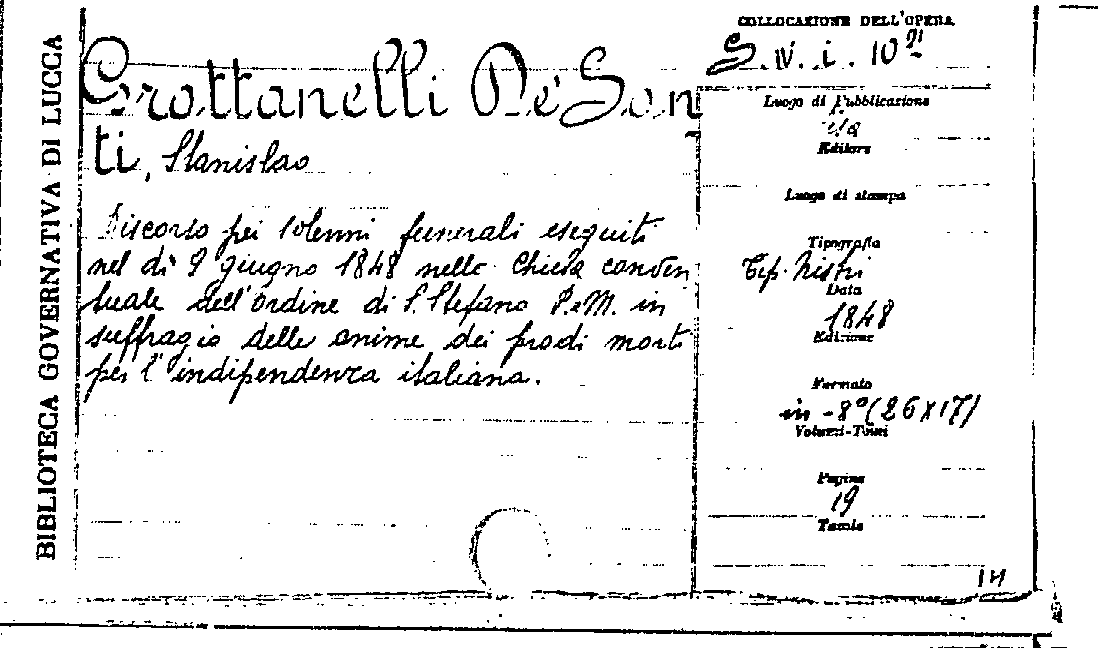 BIBLIOTECA GOVERNATIVA DI LUCCA
Grottanelli De' San
ti, Stanislao
Discorso pei solenni funerali eseguiti
nel dì 9 giugno 1848 nella Chiesa conven
tuale dell'ordine di S. Stefano P. e M. in
suffragio delle anime dei prodi morti
per l'indipendenza italiana.
COLLOCAZIONE DELL'OPERA
Luogo di Pubblicazione
Editore
Luogo di stampa
Tipografia
Tip. Nistri
Data
1848
Edizione
Formato
in-8° (26x17)
Volumi-Tomi
Pagine
19
Tavole